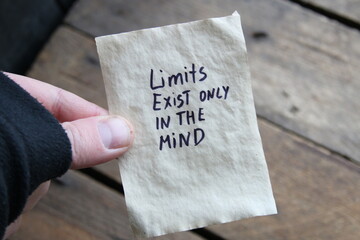 Limits
Exist only
in the
mind